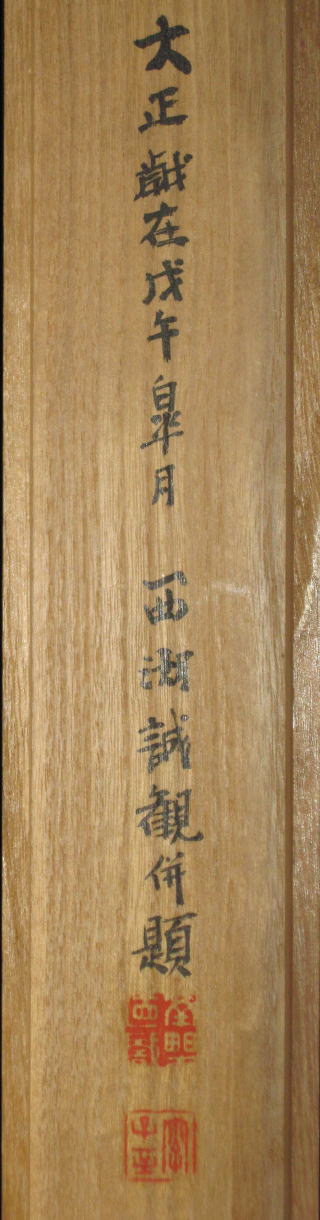 大正歳在戊午皐月 西湖誠観併題